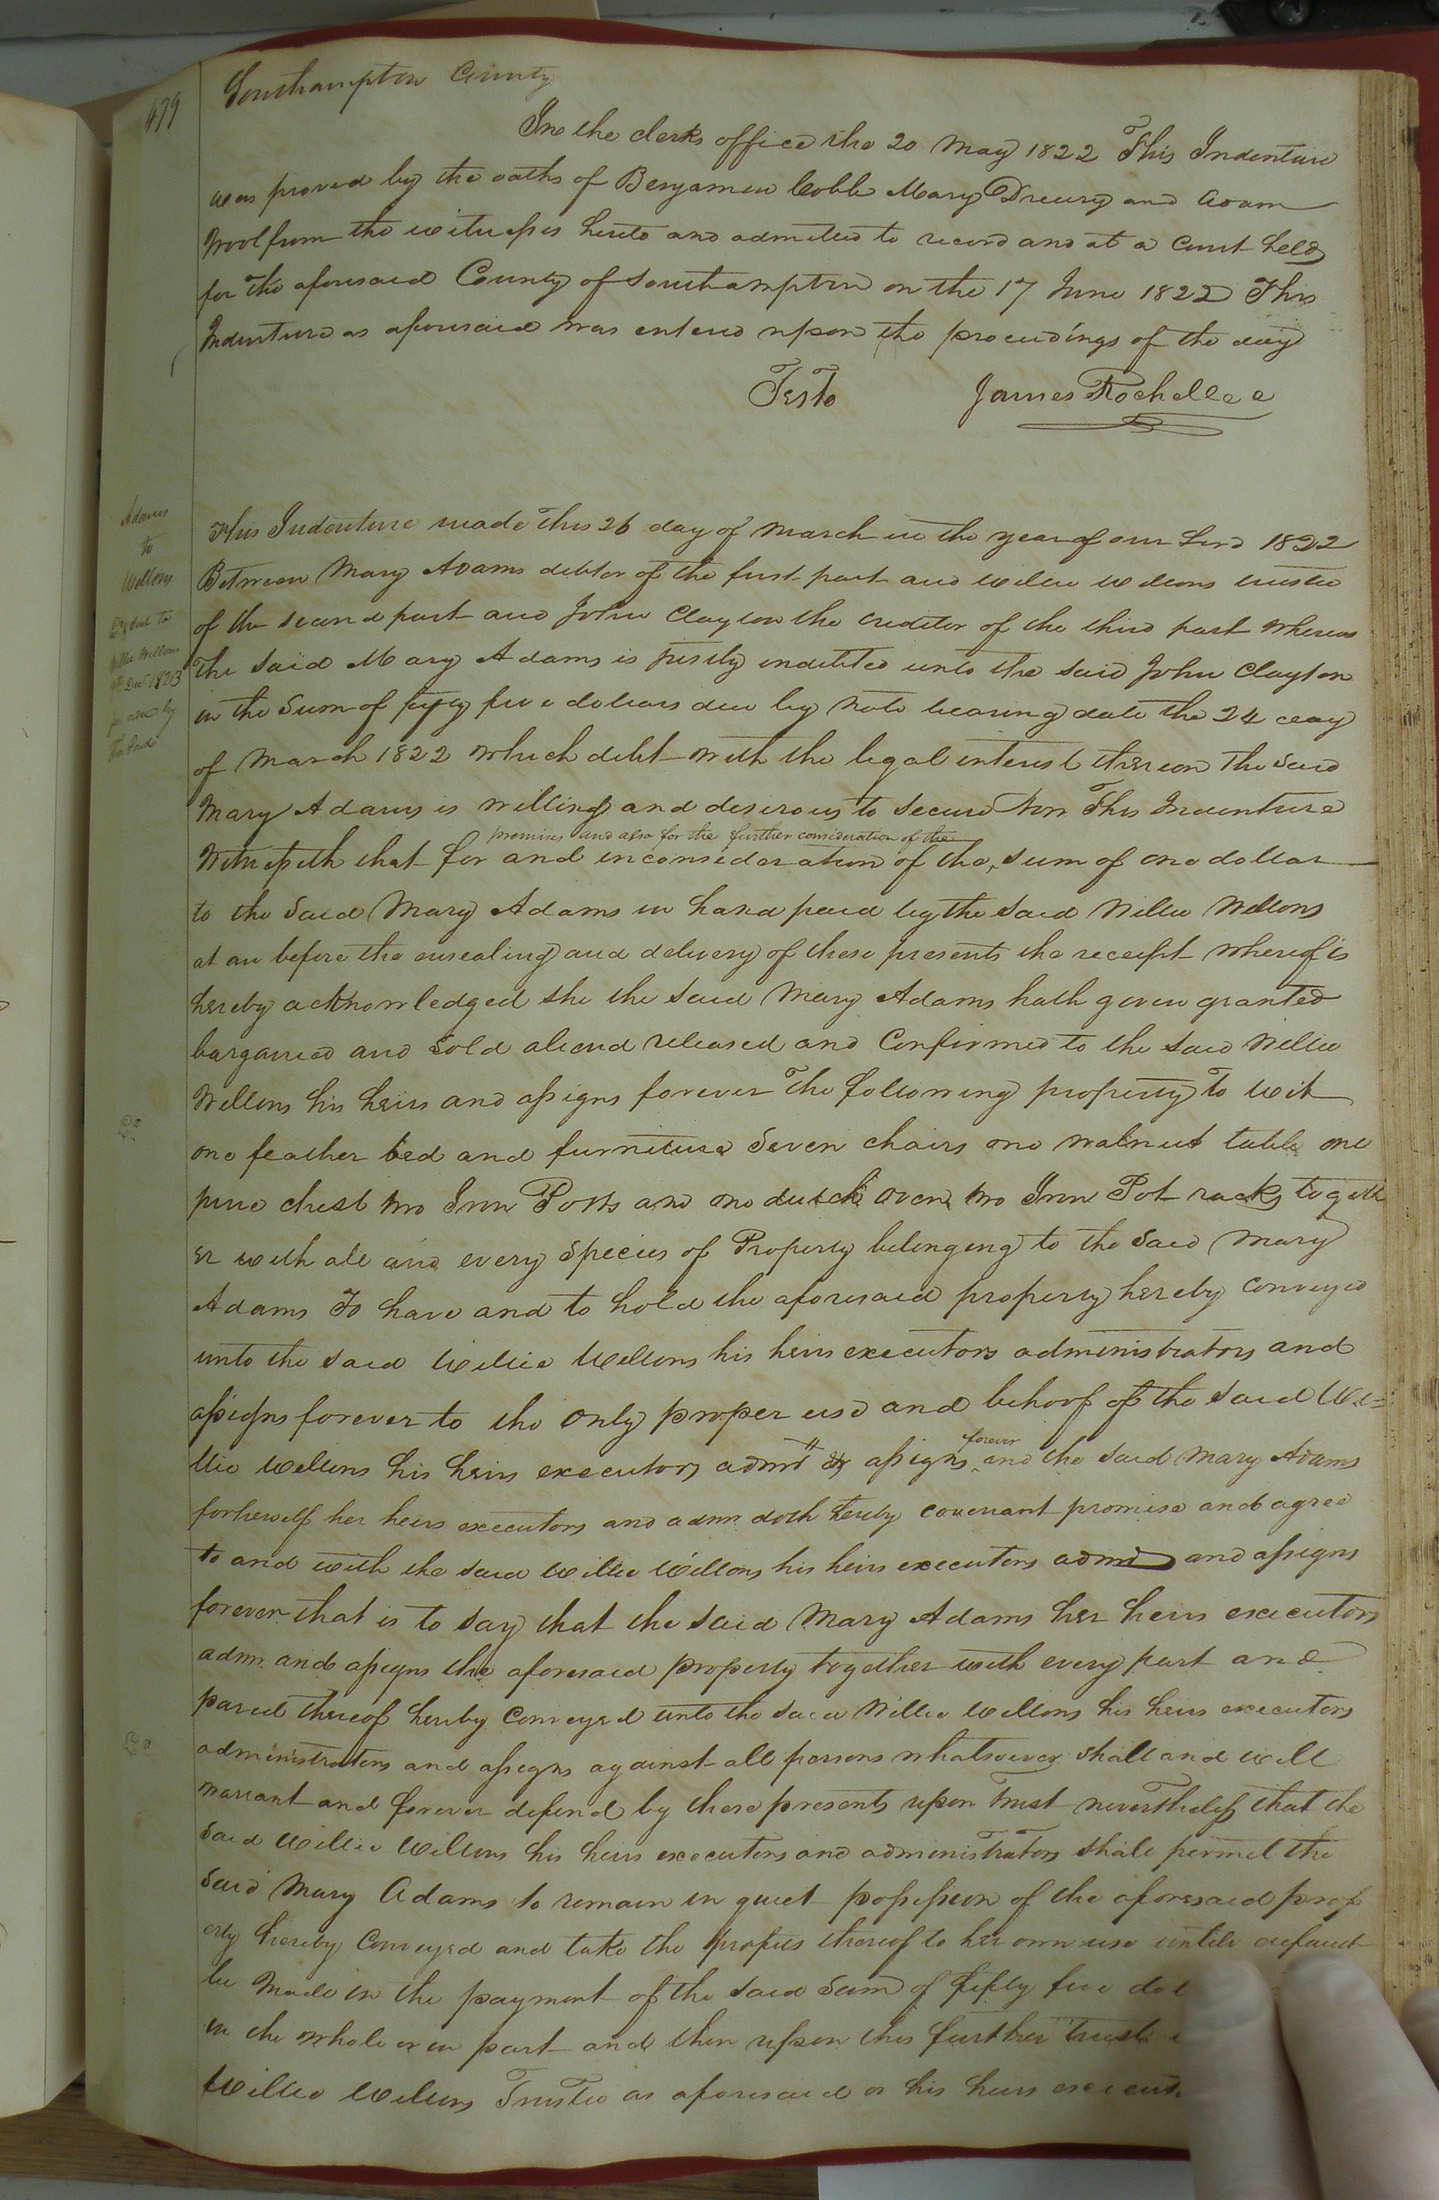 479
Southampton County
In the clerks office the 20 May 1822 This Indenture
was proved by the oaths of Benjamin Cobb Mary Drewry and
the witnesses hereto and admitted to record and at a Court held
for the aforesaid County of Southampton on the 17 June 1822 This
Indenture as aforesaid was entered upon the proceedings of the day
Teste James Rochelle c
Adams
to
Wellons
This Indenture made this 26 day of March in the year of our Lord 1822
Between Mary Adams debtor of the first part and Willie Wellons trustee
of the second part and John Clayton the creditor of the third part Whereas
the said Mary Adams is justly indebted unto the said John Clayton
in the Sum of fifty five dollars due by note bearing date the 24 day
of March 1822 which debt with the legal interest thereon the said
Mary Adams is willing and desirous to secure Now This Indenture
premises and also for the further consideration of the
Witnesseth that for and in consideration of the sum of one dollar
to the said Mary Adams in hand paid by the said Willie Wellons
at an before the ensealing and delivery of these presents the receipt whereof is
hereby acknowledged she the said Mary Adams hath given granted
bargained and sold aliend released and Confirmed to the said Willie
Wellons his heirs and assigns forever The following property to wit
one feather bed and furniture Seven chairs one walnut table one
pine chest two Iron Potts and one dutch oven two Iron Pot racks togeth
er with all and every Species of Property belonging to the said Mary
Adams To have and to hold the aforesaid property hereby conveyed
unto the said Willie Wellons his heirs executors administrators and
assigns forever to the only proper use and behoof of the said Wi=
llie Wellons his heirs executors admrs & assigns
forever
and the said Mary Adams
for herself her heirs executors and admr. doth hereby covenant promise and agree
to and with the said Willie Wellons his heirs executors admrs and assigns
forever that is to say that the said Mary Adams her heirs executors
admr. and assigns the aforesaid property together with every part and
parcel thereof hereby conveyed unto the said Willie Wellons his heirs executors
administrators and assigns against all persons whatsoever shall and will
warrant and forever defend by these presents upon trust nevertheless that the
said Willie Wellons his heirs executors and administrators shall permit the
said Mary Adams to remain in quiet possession of the aforesaid prop
erty hereby conveyed and take the profits thereof to her own use until default
be made in the payment of the said sum of fifty five dol
in the whole or in part and then upon this further trust
Willie Wellons Trustee as aforesaid or his heirs execut